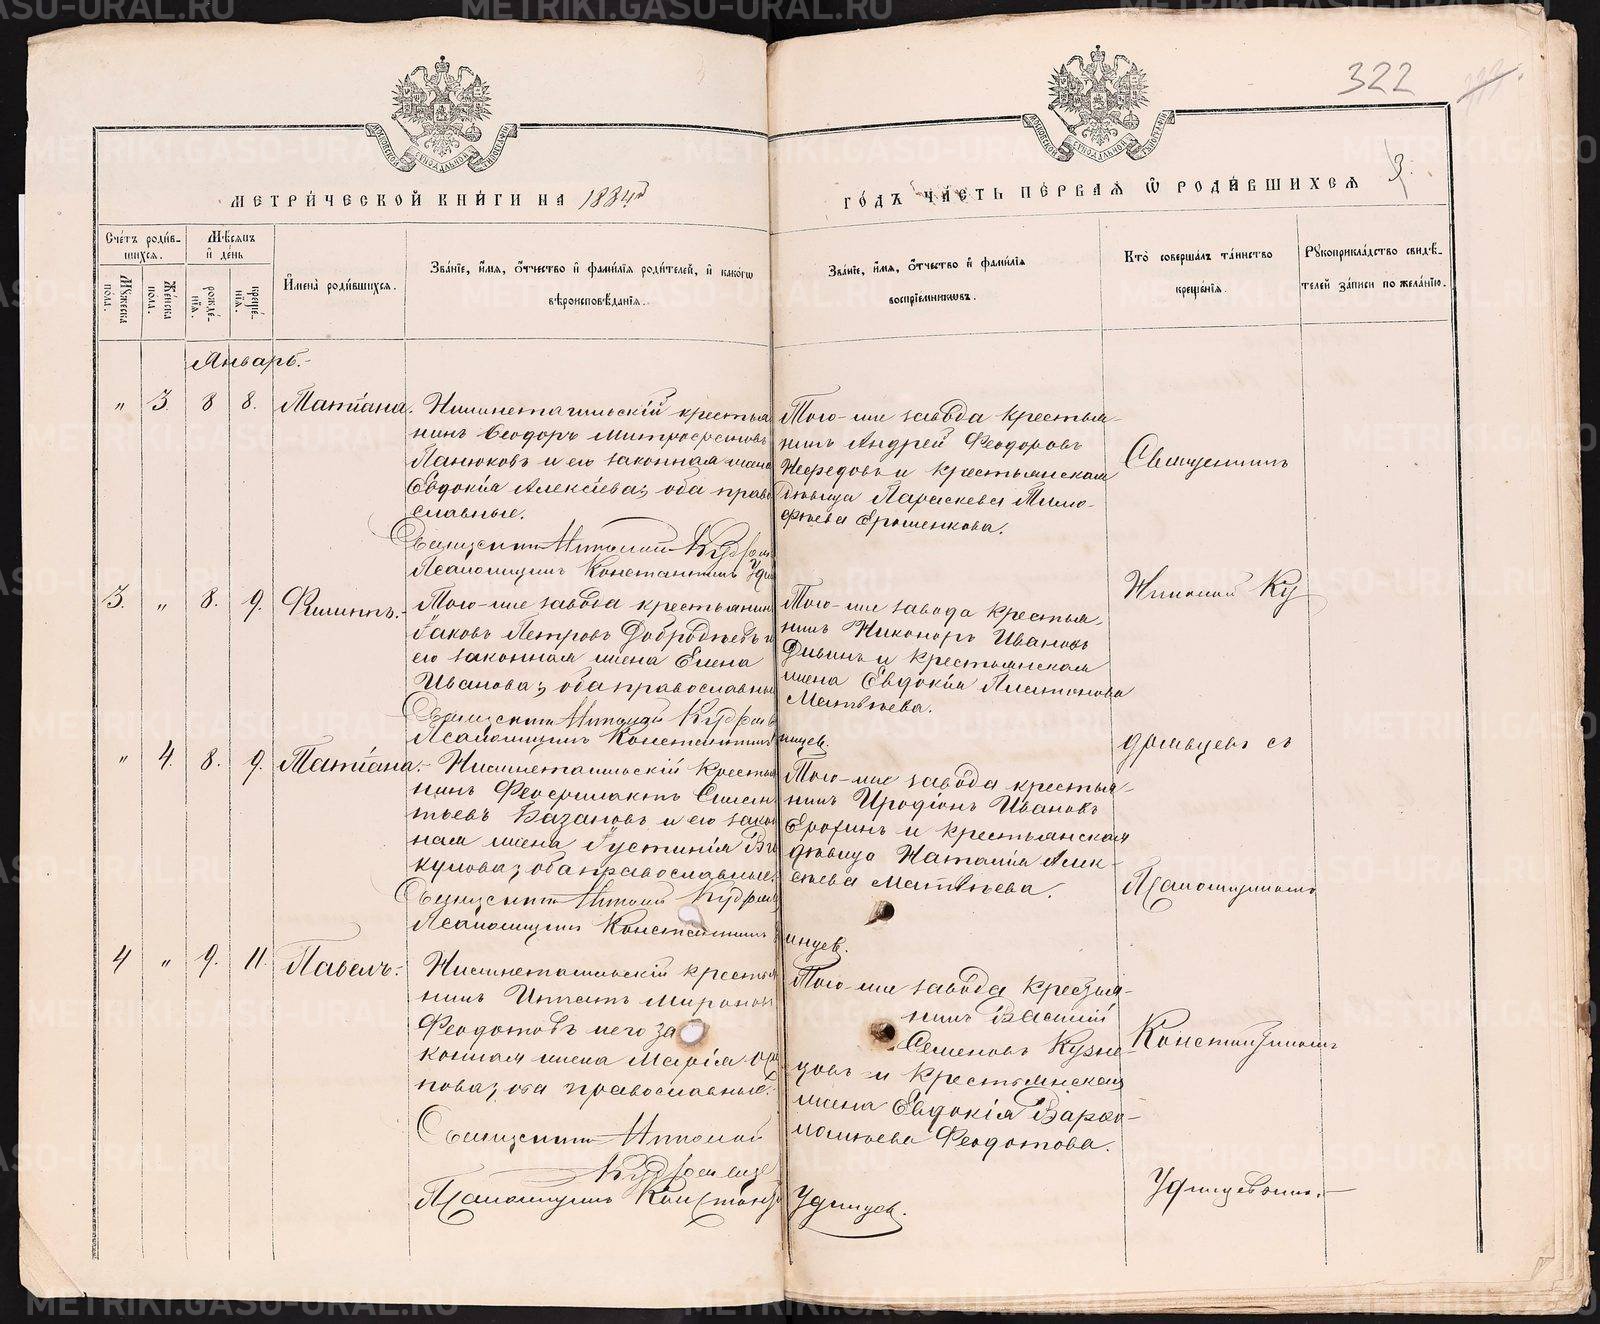 322
3.
МЕТРИЧЕСКОЙ КНИГИ НА 1884й
ГОДЪ ЧАСТЬ ПЕРВАЯ Ѿ РОДИВШИХСЯ
Счетъ родив-
шихся.
Мѣсяцъ
и день
Мужеска
пола.
Женска
пола.
рожде-
нїя.
креще-
нїя.
Имена родившихся.
Званїе, имя, отчество и фамилїя родителей, и какогѡ
вѣроисповѣданїя.
Званїе, имя, отчество и фамилїя
воспрїемникѡвъ.
Кто совершалъ таинство
крещенїя.
Рукоприкладство свидѣ-
телей записи по желанїю.
Январь.
„ 3. 8 8. Татіана.
Нижнетагильскій крестья
нинъ Ѳеодоръ Митрофановъ
Панюковъ и его законная жена
Евдокія Алексіева; оба право
славные.
Священникъ Николай Кудр
Псаломщикъ Константинъ Уди
Того-же завода крестья-
нинъ Андрей Феодоровъ
Нефедовъ и крестьянская
дѣвица Параскева Тимо-
феева Ерошенкова.
Священникъ
3. „ 8. 9. Филиппъ.
Того-же завода крестьянинъ
Іаковъ Петровъ Добродѣевъ и
его законная жена Елена
Иванова; оба православные
Священникъ Николай Кудрявц
Псаломщикъ Константинъ
Того-же завода крестья-
нинъ Никоноръ Ивановъ
и крестьянская
жена Евдокія Платонова
Матвѣева.
нцев.
Николай Ку
дрявцевъ съ
„ 4. 8. 9. Татіана.
Нижнетагильскій крестья
нинъ Феофилактъ Силан
тьевъ Базановъ и его закон
ная жена Іустинія Ви
кулова; оба православные.
Священникъ Николай Кудрявц
Псаломщикъ Константинъ
Того-же завода крестья-
нинъ Иродіонъ Ивановъ
Ерохинъ и крестьянская
дѣвица Наталія Алек-
сѣева Матвѣева.
инцев.
Псаломщикомъ
4 „ 9. 11. Павелъ.
Нижнетагильскій крестья
нинъ Ипатъ Мироновъ
Феодотовъ и его за
конная жена Марія
пова; оба православные.
Священникъ Николай
Кудрявцев
Псаломщикъ Константин
Того-же завода крестья-
нинъ Василій
Семеновъ Кузне-
цовъ и крестьянская
жена Евдокія Варѳо-
ломѣева Феодотова.
Удинцев.
Константиномъ
Удинцевымъ.